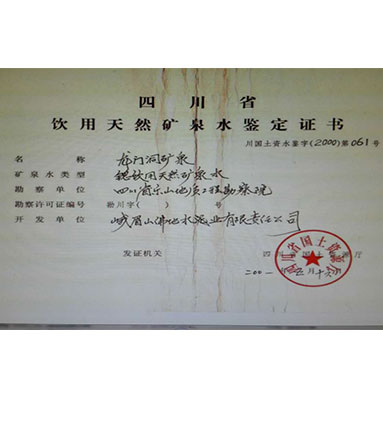 四川省
饮用天然矿泉水鉴定证书
川国土资水鉴字(2000)第061号
名称 龙门洞矿泉
矿泉水类型 锶饮用天然矿泉水
勘察单位 四川省乐山地质工程勘察院
勘察许可证编号 勘川字( )号
开发单位 峨眉山佛地水泥业有限责任公司
发证机关 四川省国土资源厅